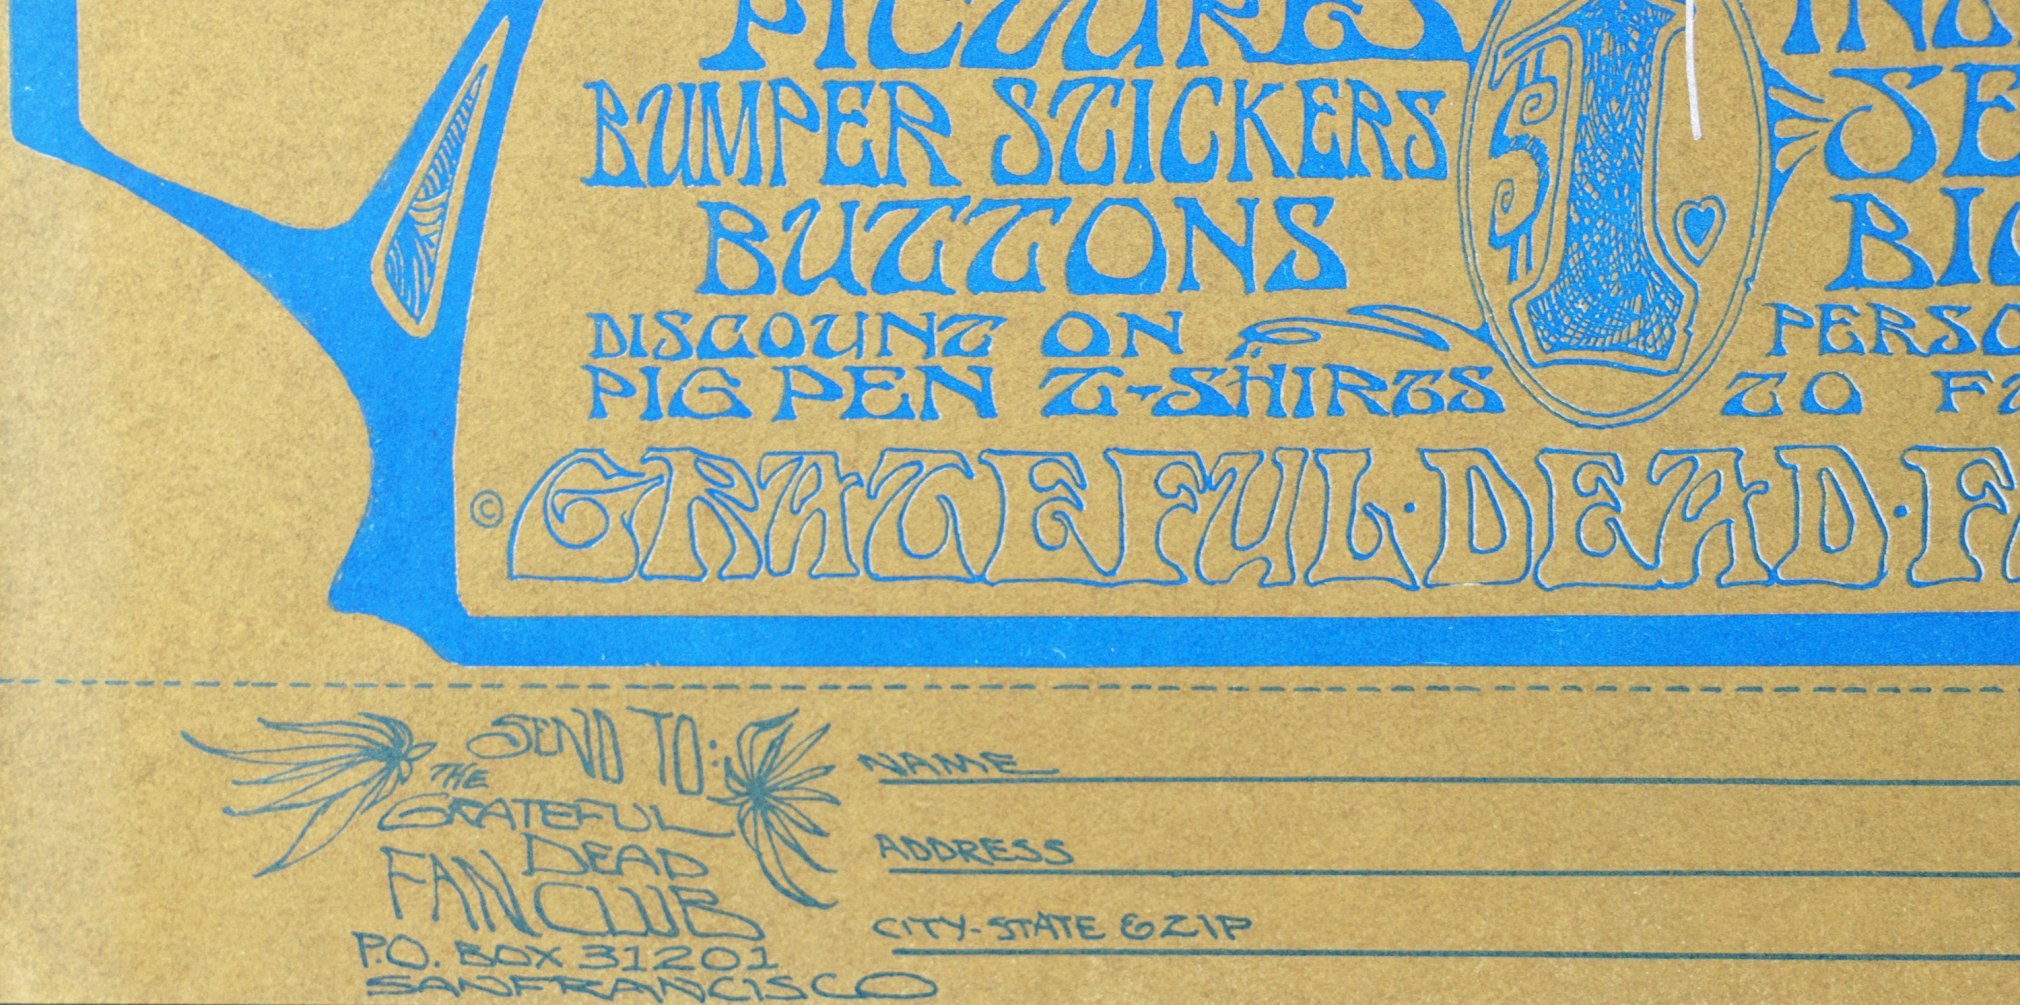 PICTURES
BUMPER STICKERS
BUTTONS
DISCOUNT ON
PIG PEN T-SHIRTS
$1
SE
TO
© GRATEFUL·DEAD·
SEND TO:
THE
GRATEFUL
DEAD
FAN CLUB
P.O. BOX 31201
SAN FRANCISCO
NAME
ADDRESS
CITY-STATE & ZIP